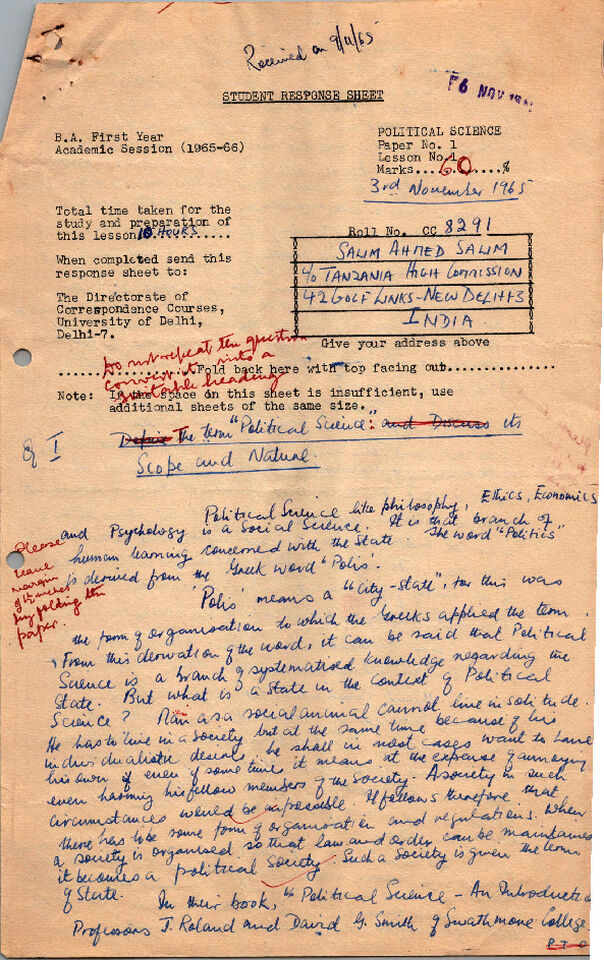 Received on 9/11/65
STUDENT RESPONSE SHEET
6 NOV
B.A. First Year
Academic Session (1965-66)
POLITICAL SCIENCE
Paper No. 1
Lesson No.1
Marks....60....%
3rd November 1965
Total time taken for the
study and preparation of
this lesson 10 HOURS
When completed send this
response sheet to:
The Directorate of
Correspondence Courses,
University of Delhi,
Delhi-7.
Roll No. CC 8291
SALIM AHMED SALIM
C/O TANZANIA HIGH COMMISSION
42 GOLF LINKS - NEW DELHI-3
INDIA
Give your address above
Do not repeat the question
convert it into a
suitable heading
Fold back here with top facing out
Note: If the space on this sheet is insufficient, use
additional sheets of the same size.
Q I
Define The term "Political Science": and Discuss its
Scope and Nature.
Political Science like philosophy, Ethics, Economics
and Psychology is a Social Science. It is that branch of
human learning concerned with the State. The word "Politics"
is derived from the Greek word "Polis".
Please
leave
margin
folding the
paper.
'Polis' means a "City-State", for this was
the form of organisation to which the Greeks applied the term.
From this derivation of the word, it can be said that Political
Science is a branch of systematised knowledge regarding the
State. But what is a State in the context of Political
Science? Man as a social animal cannot live in solitude.
He has to live in a Society but at the same time because of his
individualistic desires, he shall in most cases want to have
his own if even if some time it means at the expense of annoying
even harming his fellow members of the Society. A society in such
circumstances would be impossible. It follows therefore that
there has to be some form of organisation and regulations. When
a society is organised so that law and order can be maintained
it becomes a political Society. Such a Society is given the term
of State.
In their book, "Political Science - An Introduction
Professors J. Roland and David G. Smith of Swathmore College
P T O